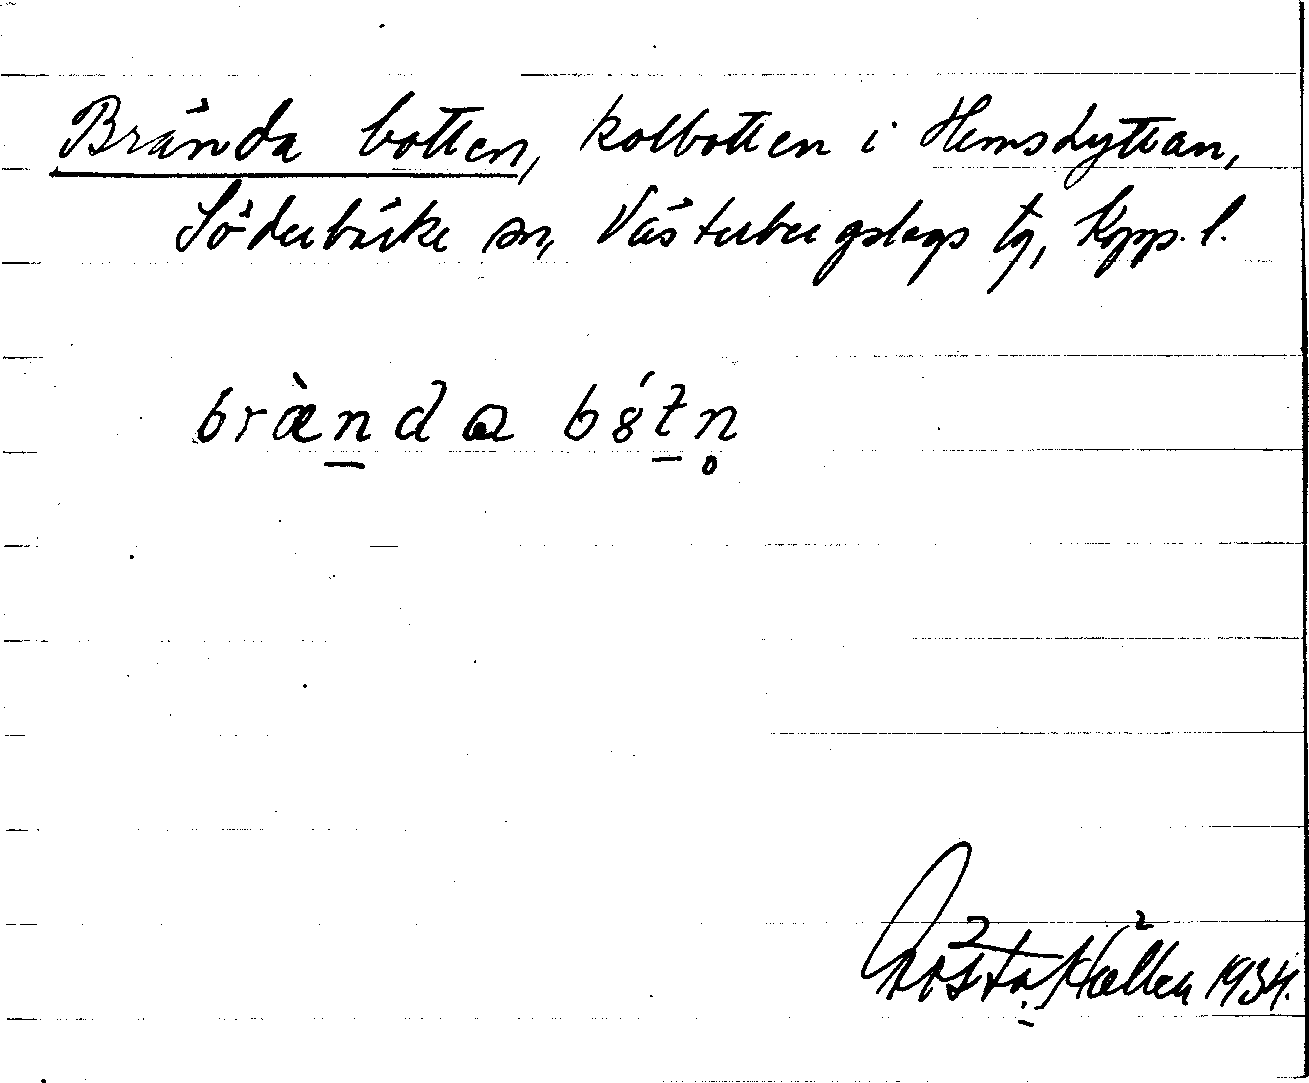 Brända botten, kolbotten i Hemshyttan,
Söderbärke sn, Västerbergslags tg, Kopp. l.
bræ̀nda bótn̥
Gösta Hallen 1934.